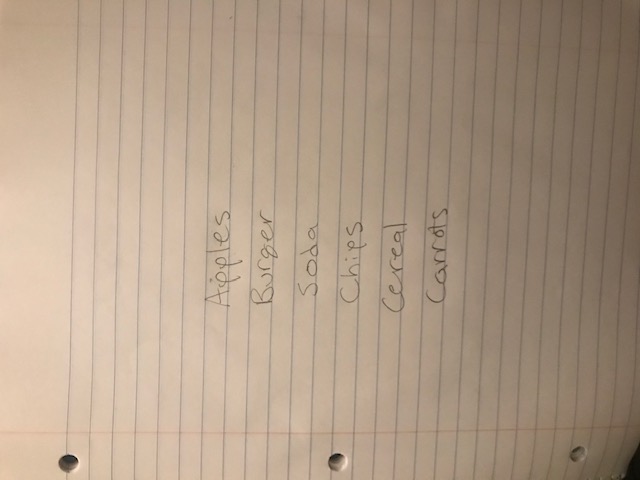 Apples
Burger
Soda
Chips
Cereal
Carrots